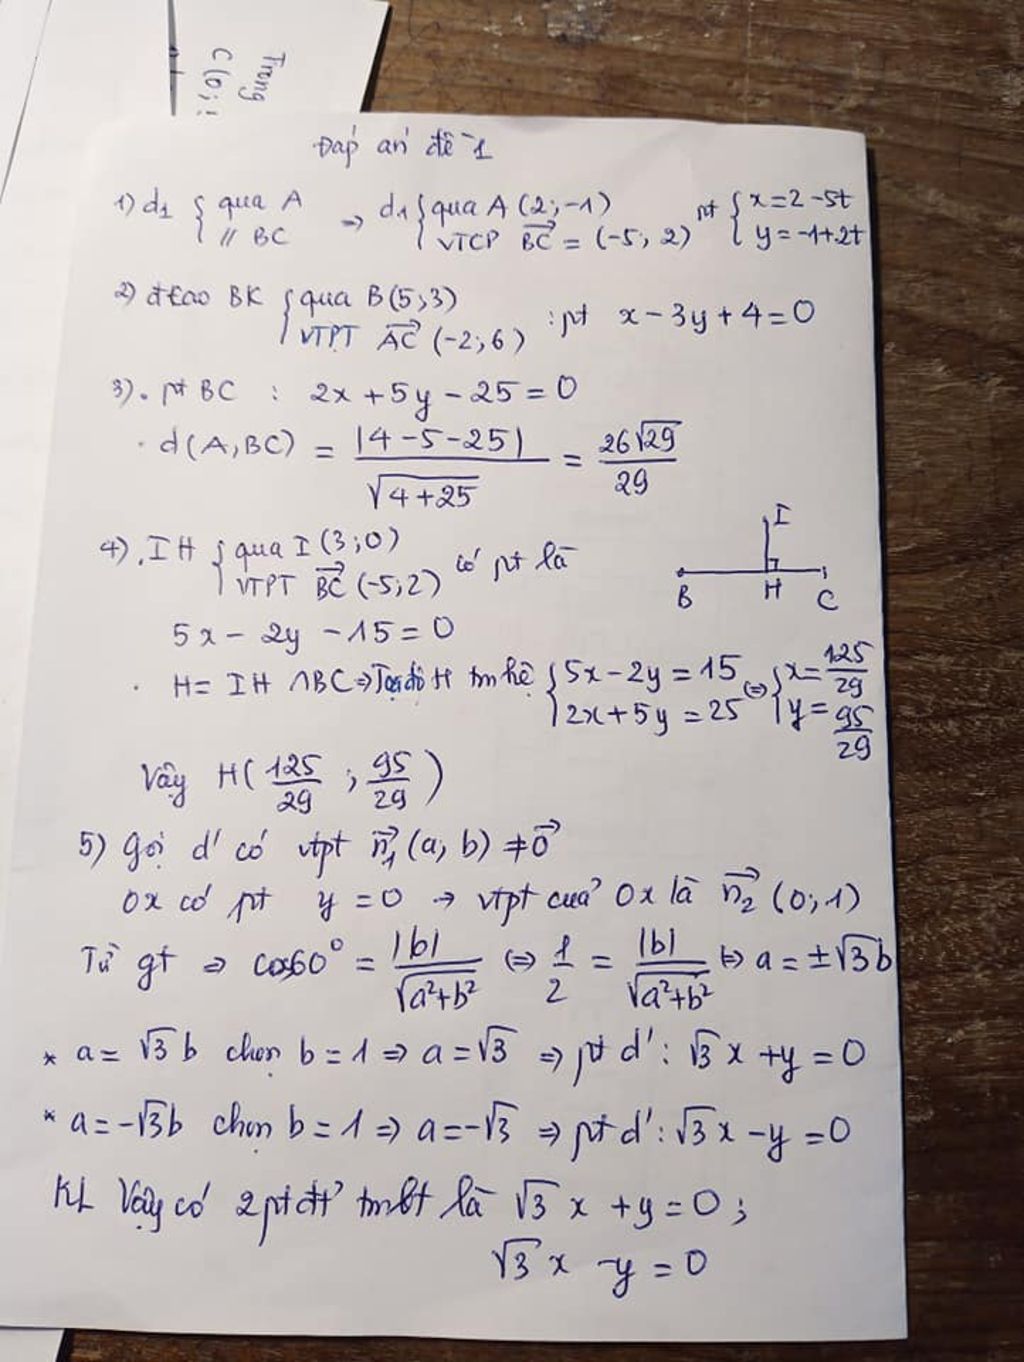 Trong
C(0;
Đáp án đề 1
1) d₁ { qua A // BC ⇒ d₁ { qua A (2;-1) VTCP \overrightarrow{BC} = (-5; 2) pt { x=2-5t y=-1+2t
2) đcao BK { qua B(5;3) VTPT \overrightarrow{AC} (-2;6) : pt x-3y+4=0
3). pt BC : 2x+5y-25=0
· d(A,BC) = |4-5-25| / √(4+25) = 26√29 / 29
4). IH { qua I(3;0) VTPT \overrightarrow{BC} (-5;2) có pt là
I
B H C
5x-2y-15=0
· H= IH ∩ BC ⇒ Toạ độ H tm hệ { 5x-2y=15 2x+5y=25 ⇔ { x=125/29 y=95/29
Vậy H( 125/29 ; 95/29 )
5) Gọi d' có vtpt \overrightarrow{n₁} (a, b) ≠ \overrightarrow{0}
Ox có pt y=0 → vtpt của Ox là \overrightarrow{n₂} (0;1)
Từ gt ⇒ cos60° = |b| / √(a²+b²) ⇔ 1/2 = |b| / √(a²+b²) ⇔ a=±√3b
* a= √3b chọn b=1 ⇒ a=√3 ⇒ pt d': √3x+y=0
* a=-√3b chọn b=1 ⇒ a=-√3 ⇒ pt d': √3x-y=0
KL Vậy có 2 pt đt' tmbt là √3x+y=0 ;
√3x -y=0